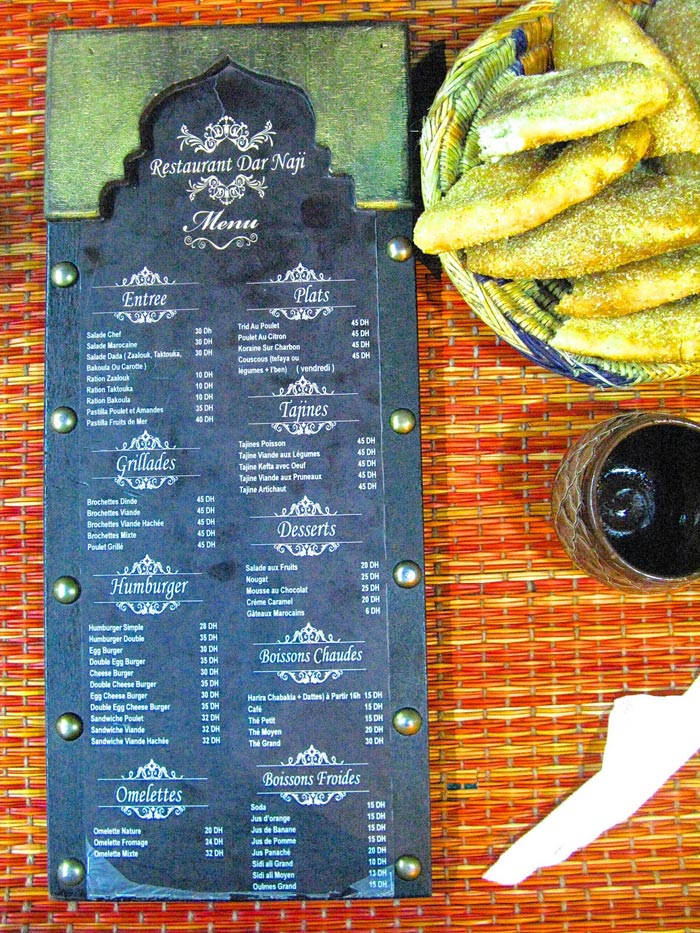 Restaurant Dar Naji
Menu
Entree
Salade Chef 30 Dh
Salade Marocaine 30 DH
Salade Dada ( Zaalouk, Taktouka, 30 DH
Bakoula Ou Carotte )
Ration Zaalouk 10 DH
Ration Taktouka 10 DH
Ration Bakoula 10 DH
Pastilla Poulet et Amandes 35 DH
Pastilla Fruits de Mer 40 DH
Grillades
Brochettes Dinde 45 DH
Brochettes Viande 45 DH
Brochettes Viande Hachée 45 DH
Brochettes Mixte 45 DH
Poulet Grillé 45 DH
Humburger
Humburger Simple 28 DH
Humburger Double 35 DH
Egg Burger 30 DH
Double Egg Burger 35 DH
Cheese Burger 30 DH
Double Cheese Burger 35 DH
Egg Cheese Burger 30 DH
Double Egg Cheese Burger 35 DH
Sandwiche Poulet 32 DH
Sandwiche Viande 32 DH
Sandwiche Viande Hachée 32 DH
Omelettes
Omelette Nature 20 DH
Omelette Fromage 24 DH
Omelette Mixte 32 DH
Plats
Trid Au Poulet 45 DH
Poulet Au Citron 45 DH
Koraine Sur Charbon 45 DH
Couscous (tefaya ou 45 DH
légumes + l'ben) ( vendredi )
Tajines
Tajines Poisson 45 DH
Tajine Viande aux Légumes 45 DH
Tajine Kefta avec Oeuf 45 DH
Tajine Viande aux Pruneaux 45 DH
Tajine Artichaut 45 DH
Desserts
Salade aux Fruits 20 DH
Nougat 25 DH
Mousse au Chocolat 25 DH
Crème Caramel 20 DH
Gâteaux Marocains 6 DH
Boissons Chaudes
Harira Chabakia + Dattes) à Partir 16h 15 DH
Café 15 DH
Thé Petit 15 DH
Thé Moyen 20 DH
Thé Grand 30 DH
Boissons Froides
Soda 15 DH
Jus d'orange 15 DH
Jus de Banane 15 DH
Jus de Pomme 15 DH
Jus Panaché 20 DH
Sidi ali Grand 10 DH
Sidi ali Moyen 13 DH
Oulmes Grand 15 DH